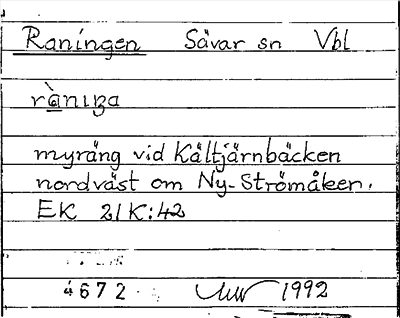 Raningen Sävar sn Vbl
rànıŋa
myräng vid Kåltjärnbäcken
nordväst om Ny-Strömåker.
EK 21K:42
4672 1992